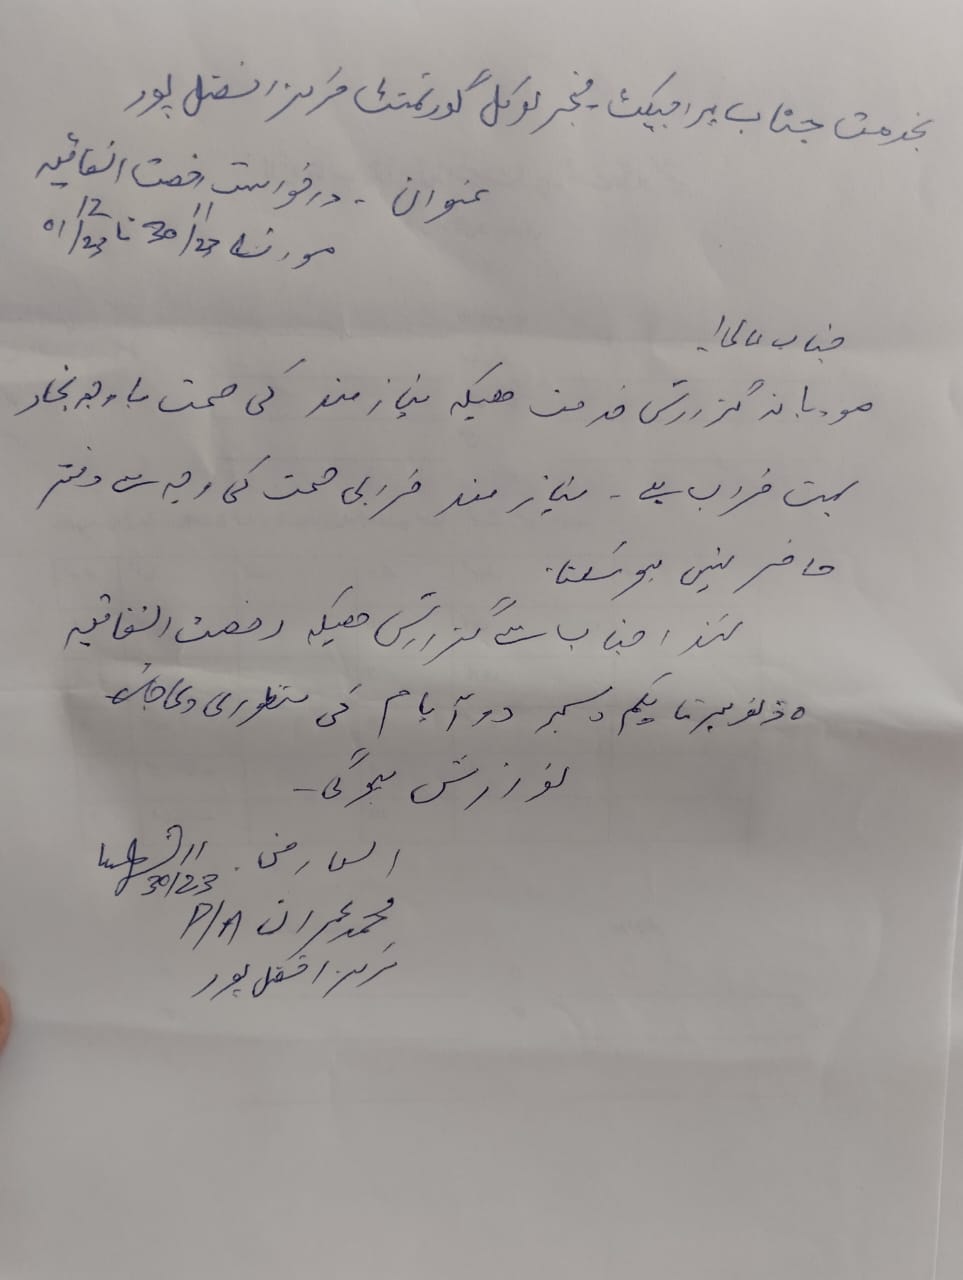 بخدمت جناب پراجیکٹ منیجر لوکل گورنمنٹ مرکز افضل پور
عنوان - درخواست رخصت اتفاقیہ
مورخہ 30/11/23 تا 01/12/23
جناب عالی!
مودبانہ گزارش خدمت ھیکہ نیاز مند کی صحت باوجہ بخار
بہت خراب ہے - نیاز مند خرابی صحت کی وجہ سے دفتر
حاضر نہیں ہو سکتا۔
لہذا جناب سے گزارش ھیکہ رخصت اتفاقیہ
30 نومبر تا یکم دسمبر دو آیام کی منظوری دی جائے
نوازش ہوگی -
العارض 30/11/23
محمد عمران P/A
مرکز افضل پور